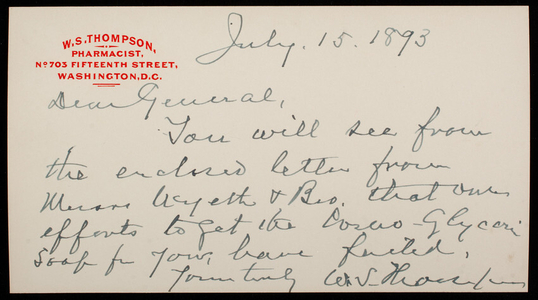 W. S. THOMPSON,
PHARMACIST,
No 703 FIFTEENTH STREET,
WASHINGTON, D.C.
July. 15. 1893
Dear General,
You will see from
the enclosed letter from
Messrs Wyeth & Bro. that our
efforts to get the Glycerin
Soap for you, have failed.
Yours truly W. S. Thompson